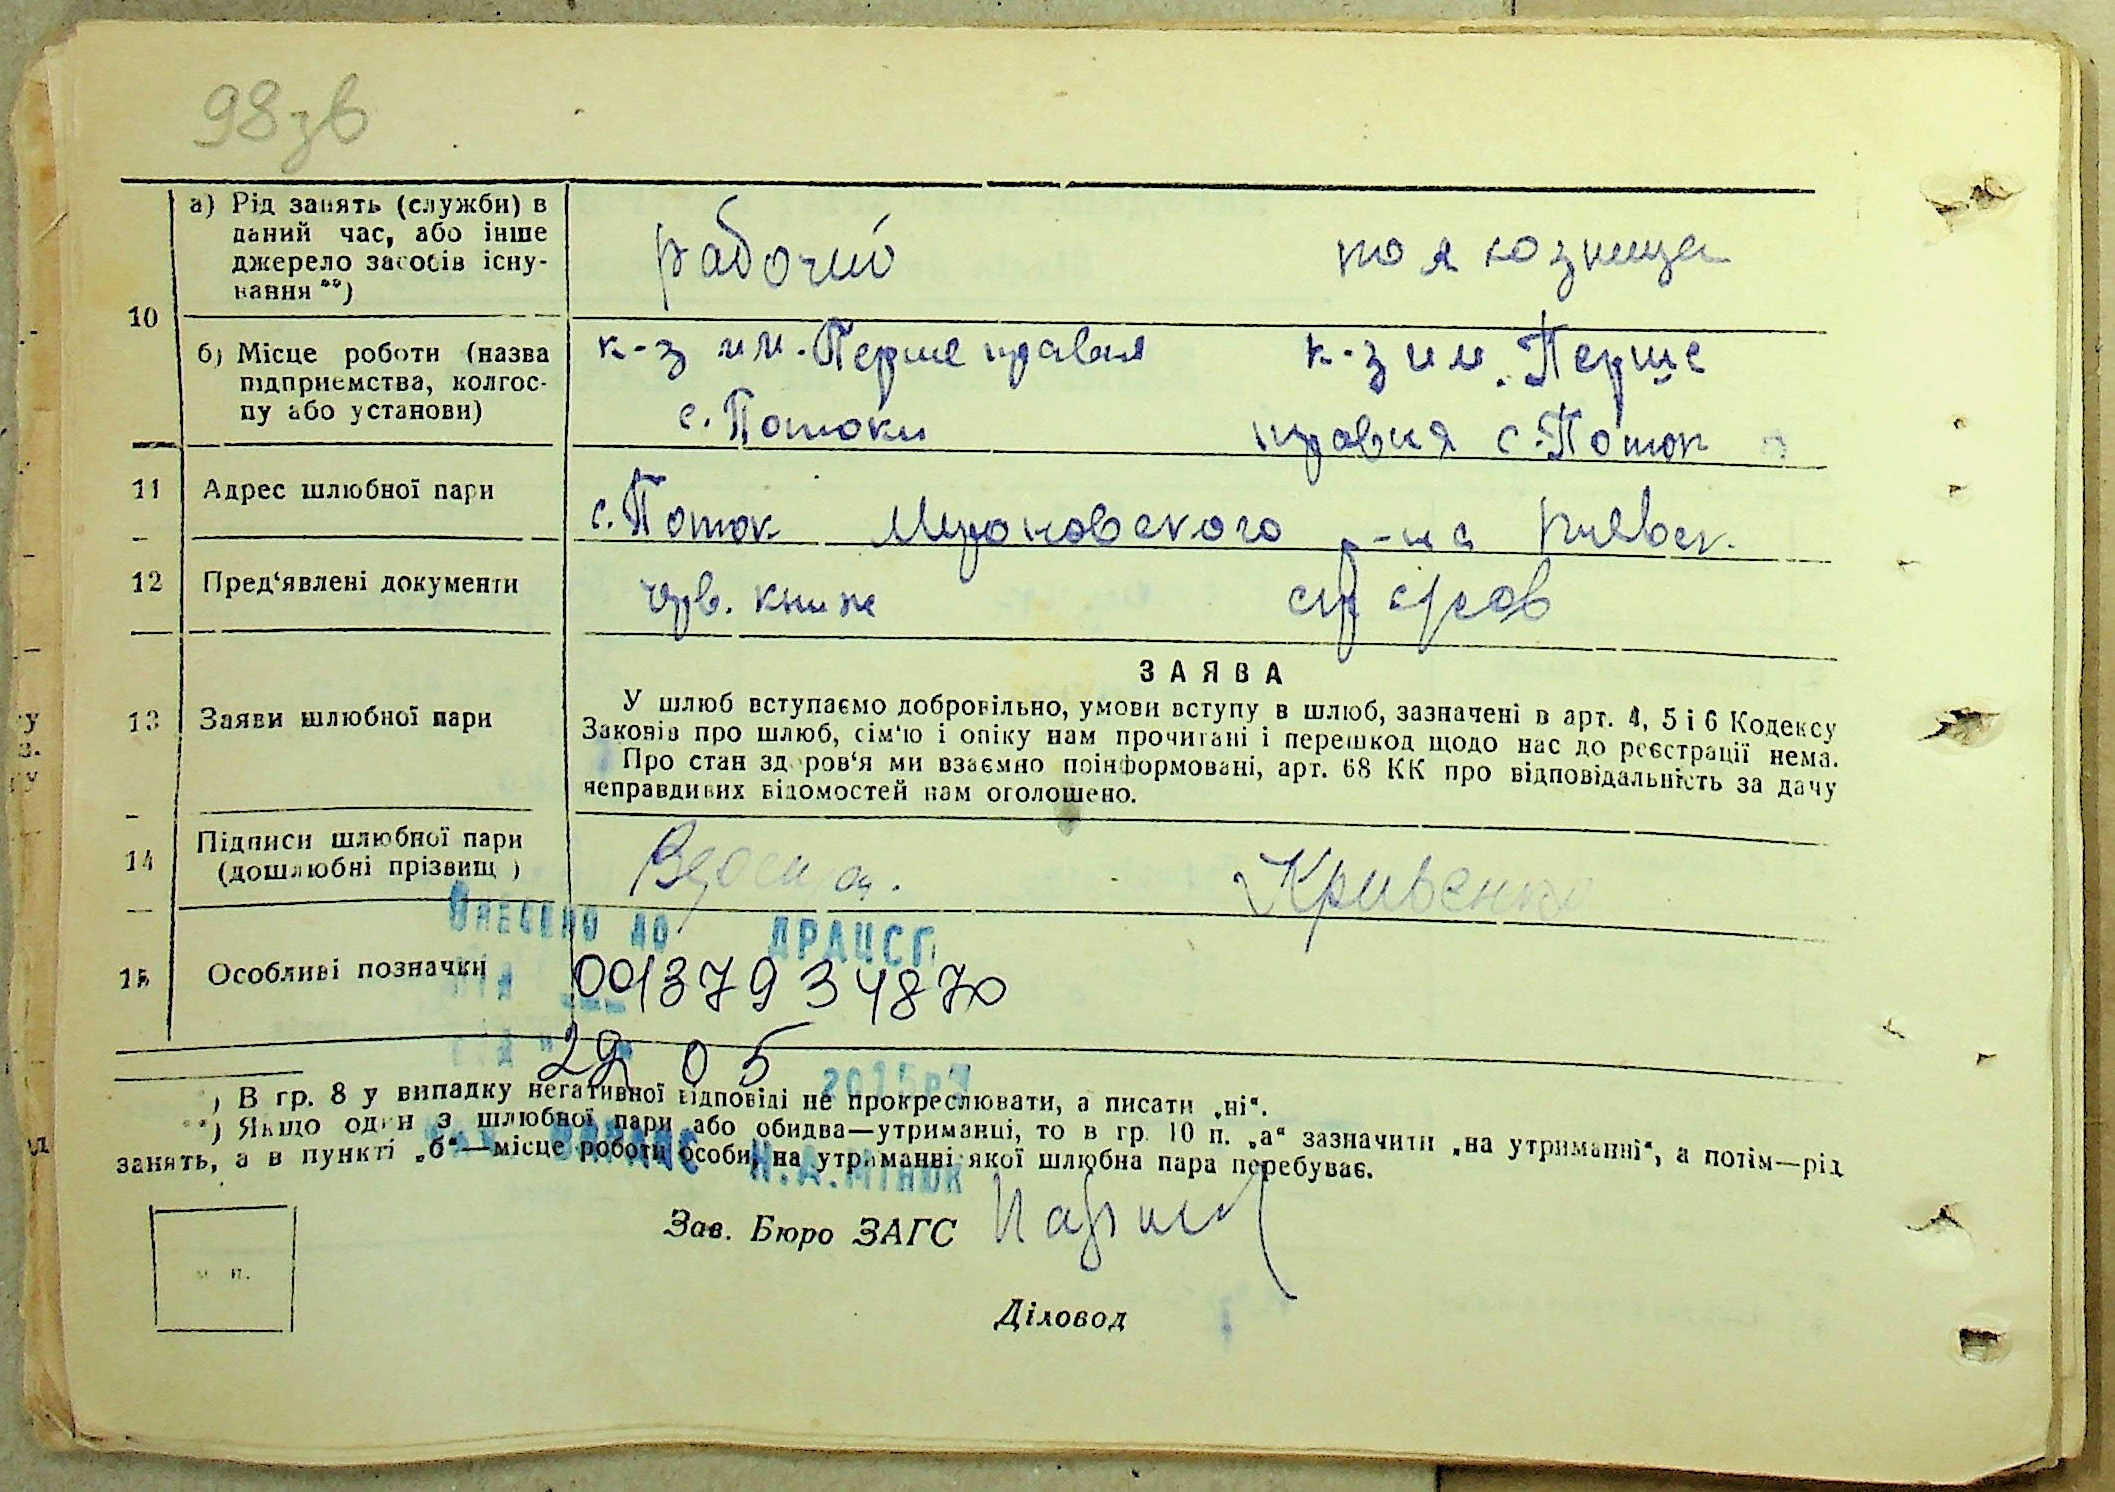 98зв
10
а) Рід занять (служби) в
даний час, або інше
джерело засобів існу-
вання **)
рабочий
б) Місце роботи (назва
підприємства, колгос-
пу або установи)
к-з им. Перше травня
с. Потоки
к-з им. Перше
травня с. Поток
11 Адрес шлюбної пари
с. Поток Мироновского р-на Киевск.
12 Пред‘явлені документи
13 Заяви шлюбної пари
ЗАЯВА
У шлюб вступаємо добровільно, умови вступу в шлюб, зазначені в арт. 4, 5 і 6 Кодексу
Законів про шлюб, сім‘ю і опіку нам прочитані і перешкод щодо нас до реєстрації нема.
Про стан здоров‘я ми взаємно поінформовані, арт. 68 КК про відповідальність за дачу
неправдивих відомостей нам оголошено.
14 Підписи шлюбної пари
(дошлюбні прізвищ )
Кривенко
Внесено до ДРАЦСГ
15 Особливі позначки
00137934870
29 05 2015р.
*) В гр. 8 у випадку негативної відповіді не прокреслювати, а писати „ні“.
**) Якщо один з шлюбної пари або обидва—утриманці, то в гр. 10 п. „а“ зазначити „на утриманні“, а потім—рід
занять, а в пункті „б“—місце роботи особи, на утриманні якої шлюбна пара перебуває.
Н.А.Мінюк
Зав. Бюро ЗАГС
м. п.
Діловод